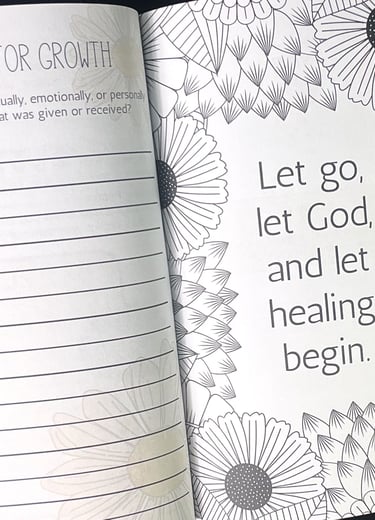 FOR GROWTH
ually, emotionally, or personally
at was given or received?
Let go,
let God,
and let
healing
begin.